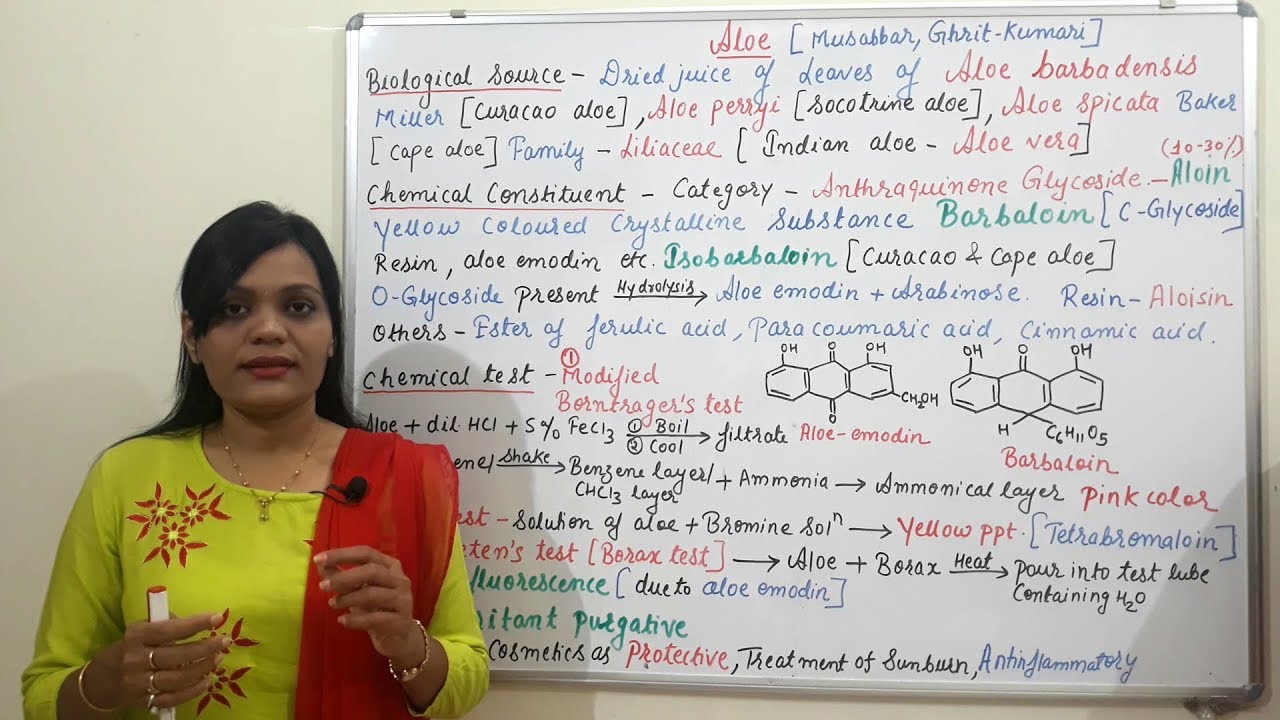 Aloe [Musabbar, Ghrit-Kumari]
Biological Source – Dried juice of leaves of Aloe barbadensis
Miller [Curacao aloe], Aloe perryi [Socotrine aloe], Aloe spicata Baker
[Cape aloe] Family – Liliaceae [Indian aloe - Aloe vera]
(10-30%)
Chemical Constituent – Category – Anthraquinone Glycoside – Aloin
Yellow Coloured Crystalline Substance Barbaloin [C-Glycoside]
Resin, aloe emodin etc. Isobarbaloin [Curacao & Cape aloe]
O-Glycoside present Hydrolysis → Aloe emodin + Arabinose. Resin – Aloisin
Others – Ester of ferulic acid, Para coumaric acid, Cinnamic acid.
Chemical test – ① Modified
Borntrager's test
OH O OH
O
CH2OH
Aloe-emodin
OH O OH
H C6H11O5
Barbaloin
Aloe + dil. HCl + 5% FeCl3 ① Boil ② Cool → filtrate
ene/ Shake → Benzene layer/ CHCl3 layer + Ammonia → Ammonical layer Pink color
st – Solution of aloe + Bromine Solⁿ → Yellow ppt. [Tetrabromaloin]
eten's test [Borax test] → Aloe + Borax Heat → pour into test tube
Containing H2O
fluorescence [due to aloe emodin]
ritant purgative
Cosmetics as Protective, Treatment of Sunburn, Antiinflammatory